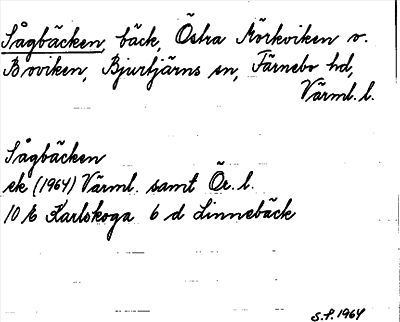 Sågbäcken, bäck, Östra Körkviken o.
Boviken, Bjurtjärns sn, Färnebo hd,
Värml. l.
Sågbäcken
ek (1964) Värml. samt Ör. l.
10 E Karlskoga 6 d Linnebäck
S.f. 1964